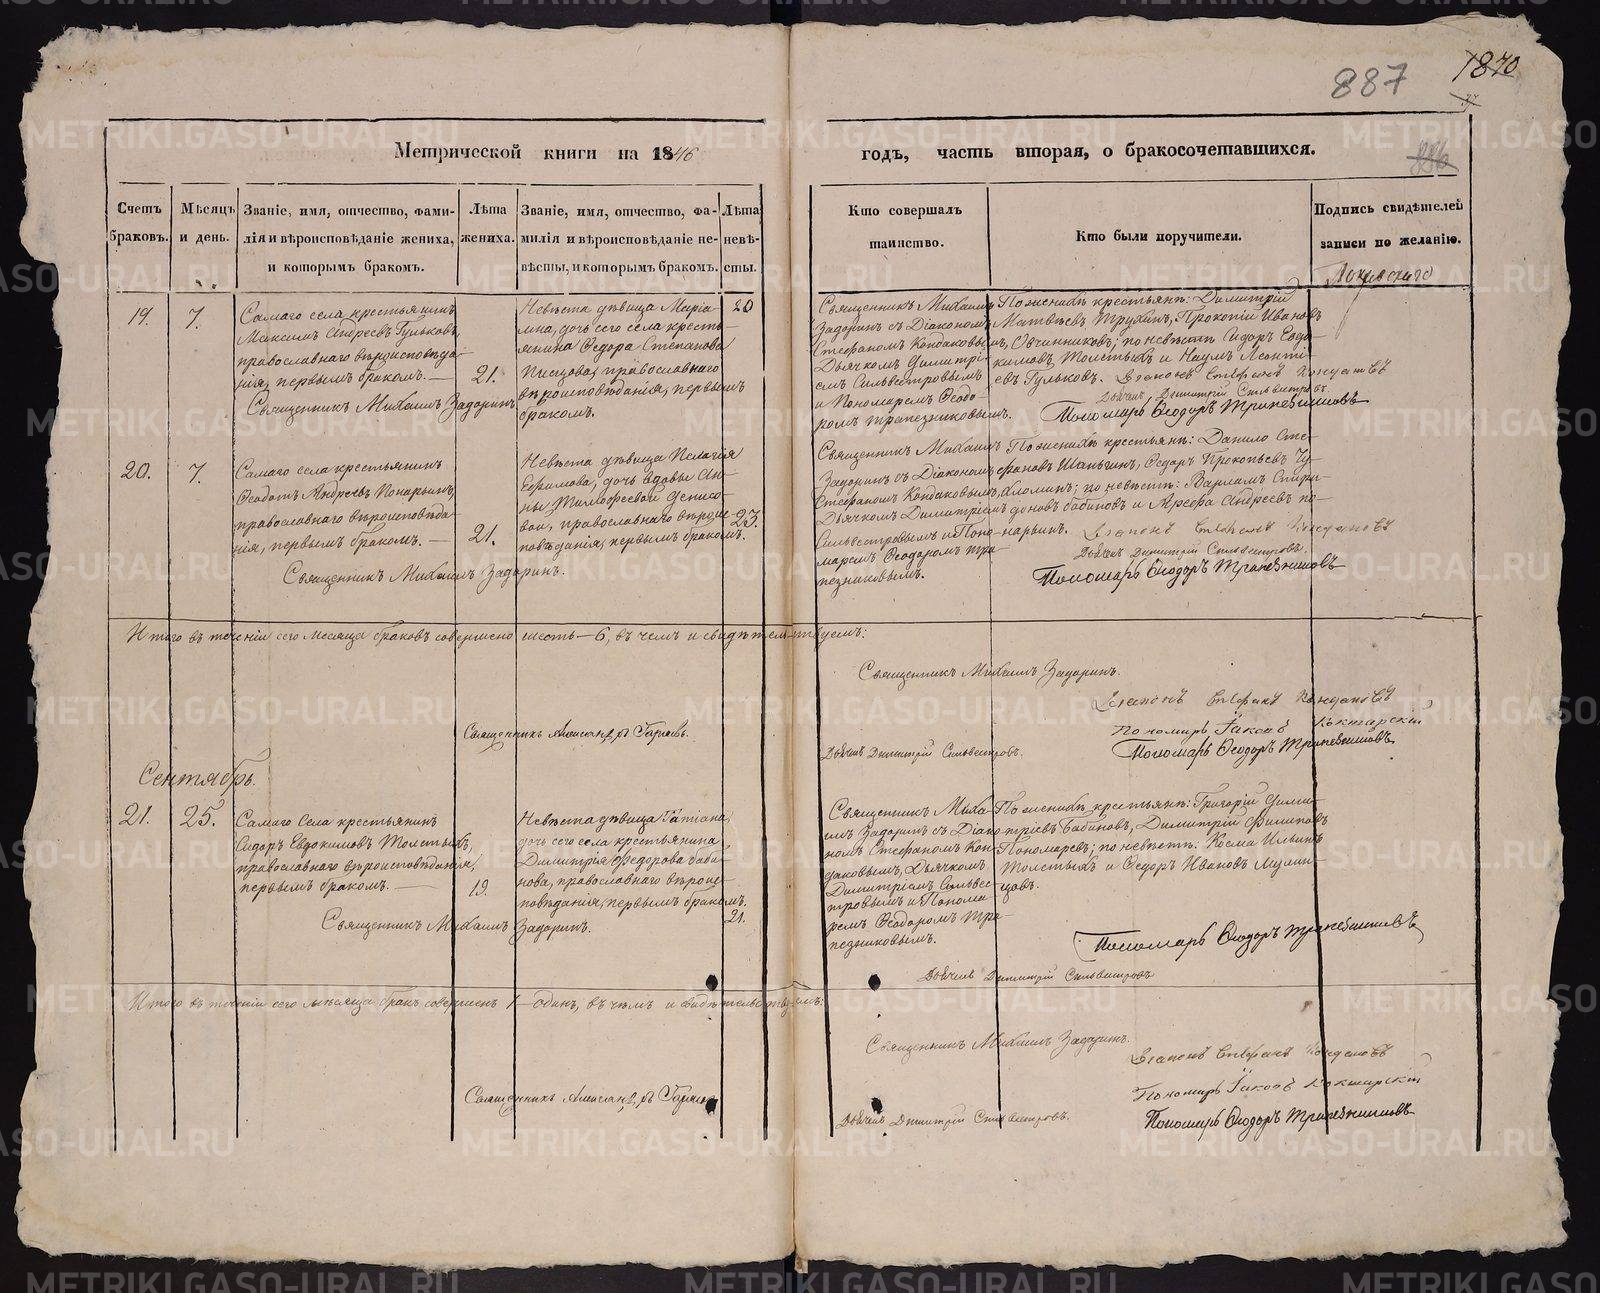 887
1870
Метрической книги на 1846
годъ, часть вторая, о бракосочетавшихся.
886
Счетъ браковъ.
Мѣсяцъ и день.
Званіе, имя, отчество, фами-
лія и вѣроисповѣданіе жениха,
и которымъ бракомъ.
Лѣта
жениха.
Званіе, имя, отчество, фа-
милія и вѣроисповѣданіе не-
вѣсты, и которымъ бракомъ.
Лѣта
невѣ-
сты.
Кто совершалъ
таинство.
Кто были поручители.
Подпись свидѣтелей
записи по желанію.
19.
7.
Самаго села крестьянинъ
Максимъ Андреевъ Гульковъ,
православнаго вѣроисповѣда-
нія, первымъ бракомъ.
21.
Священникъ Михаилъ Задоринъ.
Невѣста дѣвица Маріа-
мна, дочь сего села кресть-
янина Ѳедора Степанова
Писцова, православнаго
вѣроисповѣданія, первымъ
бракомъ.
20
Священникъ Михаилъ
Задоринъ съ Діакономъ
Стефаномъ Кондаковы-
Дьячкомъ Димитрі-
емъ Сильвестровымъ
и Пономаремъ Ѳеодо-
ромъ Трапезниковымъ.
По женихѣ крестьяне: Димитрій
Матвѣевъ Трухинъ, Прокопій Ивановъ
Овчинниковъ; по невѣстѣ: Сидоръ Евдо-
кимовъ Толстыхъ и Наумъ Леонти-
евъ Гульковъ. Діаконъ Стефанъ Кондаковъ
Дьячекъ Димитрій Сильвестровъ.
Пономарь Ѳеодоръ Трапезниковъ
20.
7.
Самаго села крестьянинъ
Ѳеодотъ Андреевъ Понарьинъ,
православнаго вѣроисповѣда-
нія, первымъ бракомъ.
21.
Священникъ Михаилъ Задоринъ.
Невѣста дѣвица Пелагія
Ефимова, дочь вдовы Ан-
ны Тимофеевой Денисо-
вой, православнаго вѣроис-
повѣданія, первымъ бракомъ.
23.
Священникъ Михаилъ
Задоринъ съ Діакономъ
Стефаномъ Кондаковымъ,
Дьячкомъ Димитріемъ
Сильвестровымъ и Поно-
маремъ Ѳеодоромъ Тра-
пезниковымъ.
По женихѣ крестьяне: Данило Сте-
фановъ Шаньгинъ, Ѳедоръ Прокопьевъ
по невѣстѣ: Варламъ Спири-
доновъ Бабиновъ и Андреевъ По-
нарьинъ. Діаконъ Стефанъ Кондаковъ
Дьячекъ Димитрій Сильвестровъ.
Пономарь Ѳеодоръ Трапезниковъ
Итого въ теченіи сего месяца браковъ совершено шесть—6, въ чемъ и свидѣтельствуемъ:
Священникъ Михаилъ Задоринъ.
Діаконъ Стефанъ Кондаковъ
Священникъ Александръ
Пономарь Іаковъ Кокшарскій
Дьячекъ Димитрій Сильвестровъ.
Пономарь Ѳеодоръ Трапезниковъ
Сентябрь.
21.
25.
Самаго Села крестьянинъ
Сидоръ Евдокимовъ Толстыхъ,
православнаго вѣроисповѣданія,
первымъ бракомъ.
19.
Священникъ Михаилъ Задоринъ.
Невѣста дѣвица Татіана,
дочь сего села крестьянина
Димитрія Ѳедорова Баби-
нова, православнаго вѣроис-
повѣданія, первымъ бракомъ.
21.
Священникъ Миха-
илъ Задоринъ съ Діако-
номъ Стефаномъ Кон-
даковымъ, Дьячкомъ
Димитріемъ Сильвес-
тровымъ и Понома-
ремъ Ѳеодоромъ Тра-
пезниковымъ.
По женихѣ крестьяне: Григорій Дими-
тріевъ Бабиновъ, Димитрій Филиповъ
Пономаревъ; по невѣстѣ: Косма Ильинъ
Толстыхъ и Ѳедоръ Ивановъ
Пономарь Ѳеодоръ Трапезниковъ
Дьячекъ Димитрій Сильвестровъ
Итого въ теченіи сего мѣсяца бракъ совершенъ 1—одинъ, въ чемъ и свидѣтельствуемъ:
Священникъ Михаилъ Задоринъ.
Діаконъ Стефанъ Кондаковъ
Священникъ Александръ
Пономарь Іаковъ Кокшарскій
Дьячекъ Димитрій Сильвестровъ.
Пономарь Ѳеодоръ Трапезниковъ
METRIKI.GASO-URAL.RU